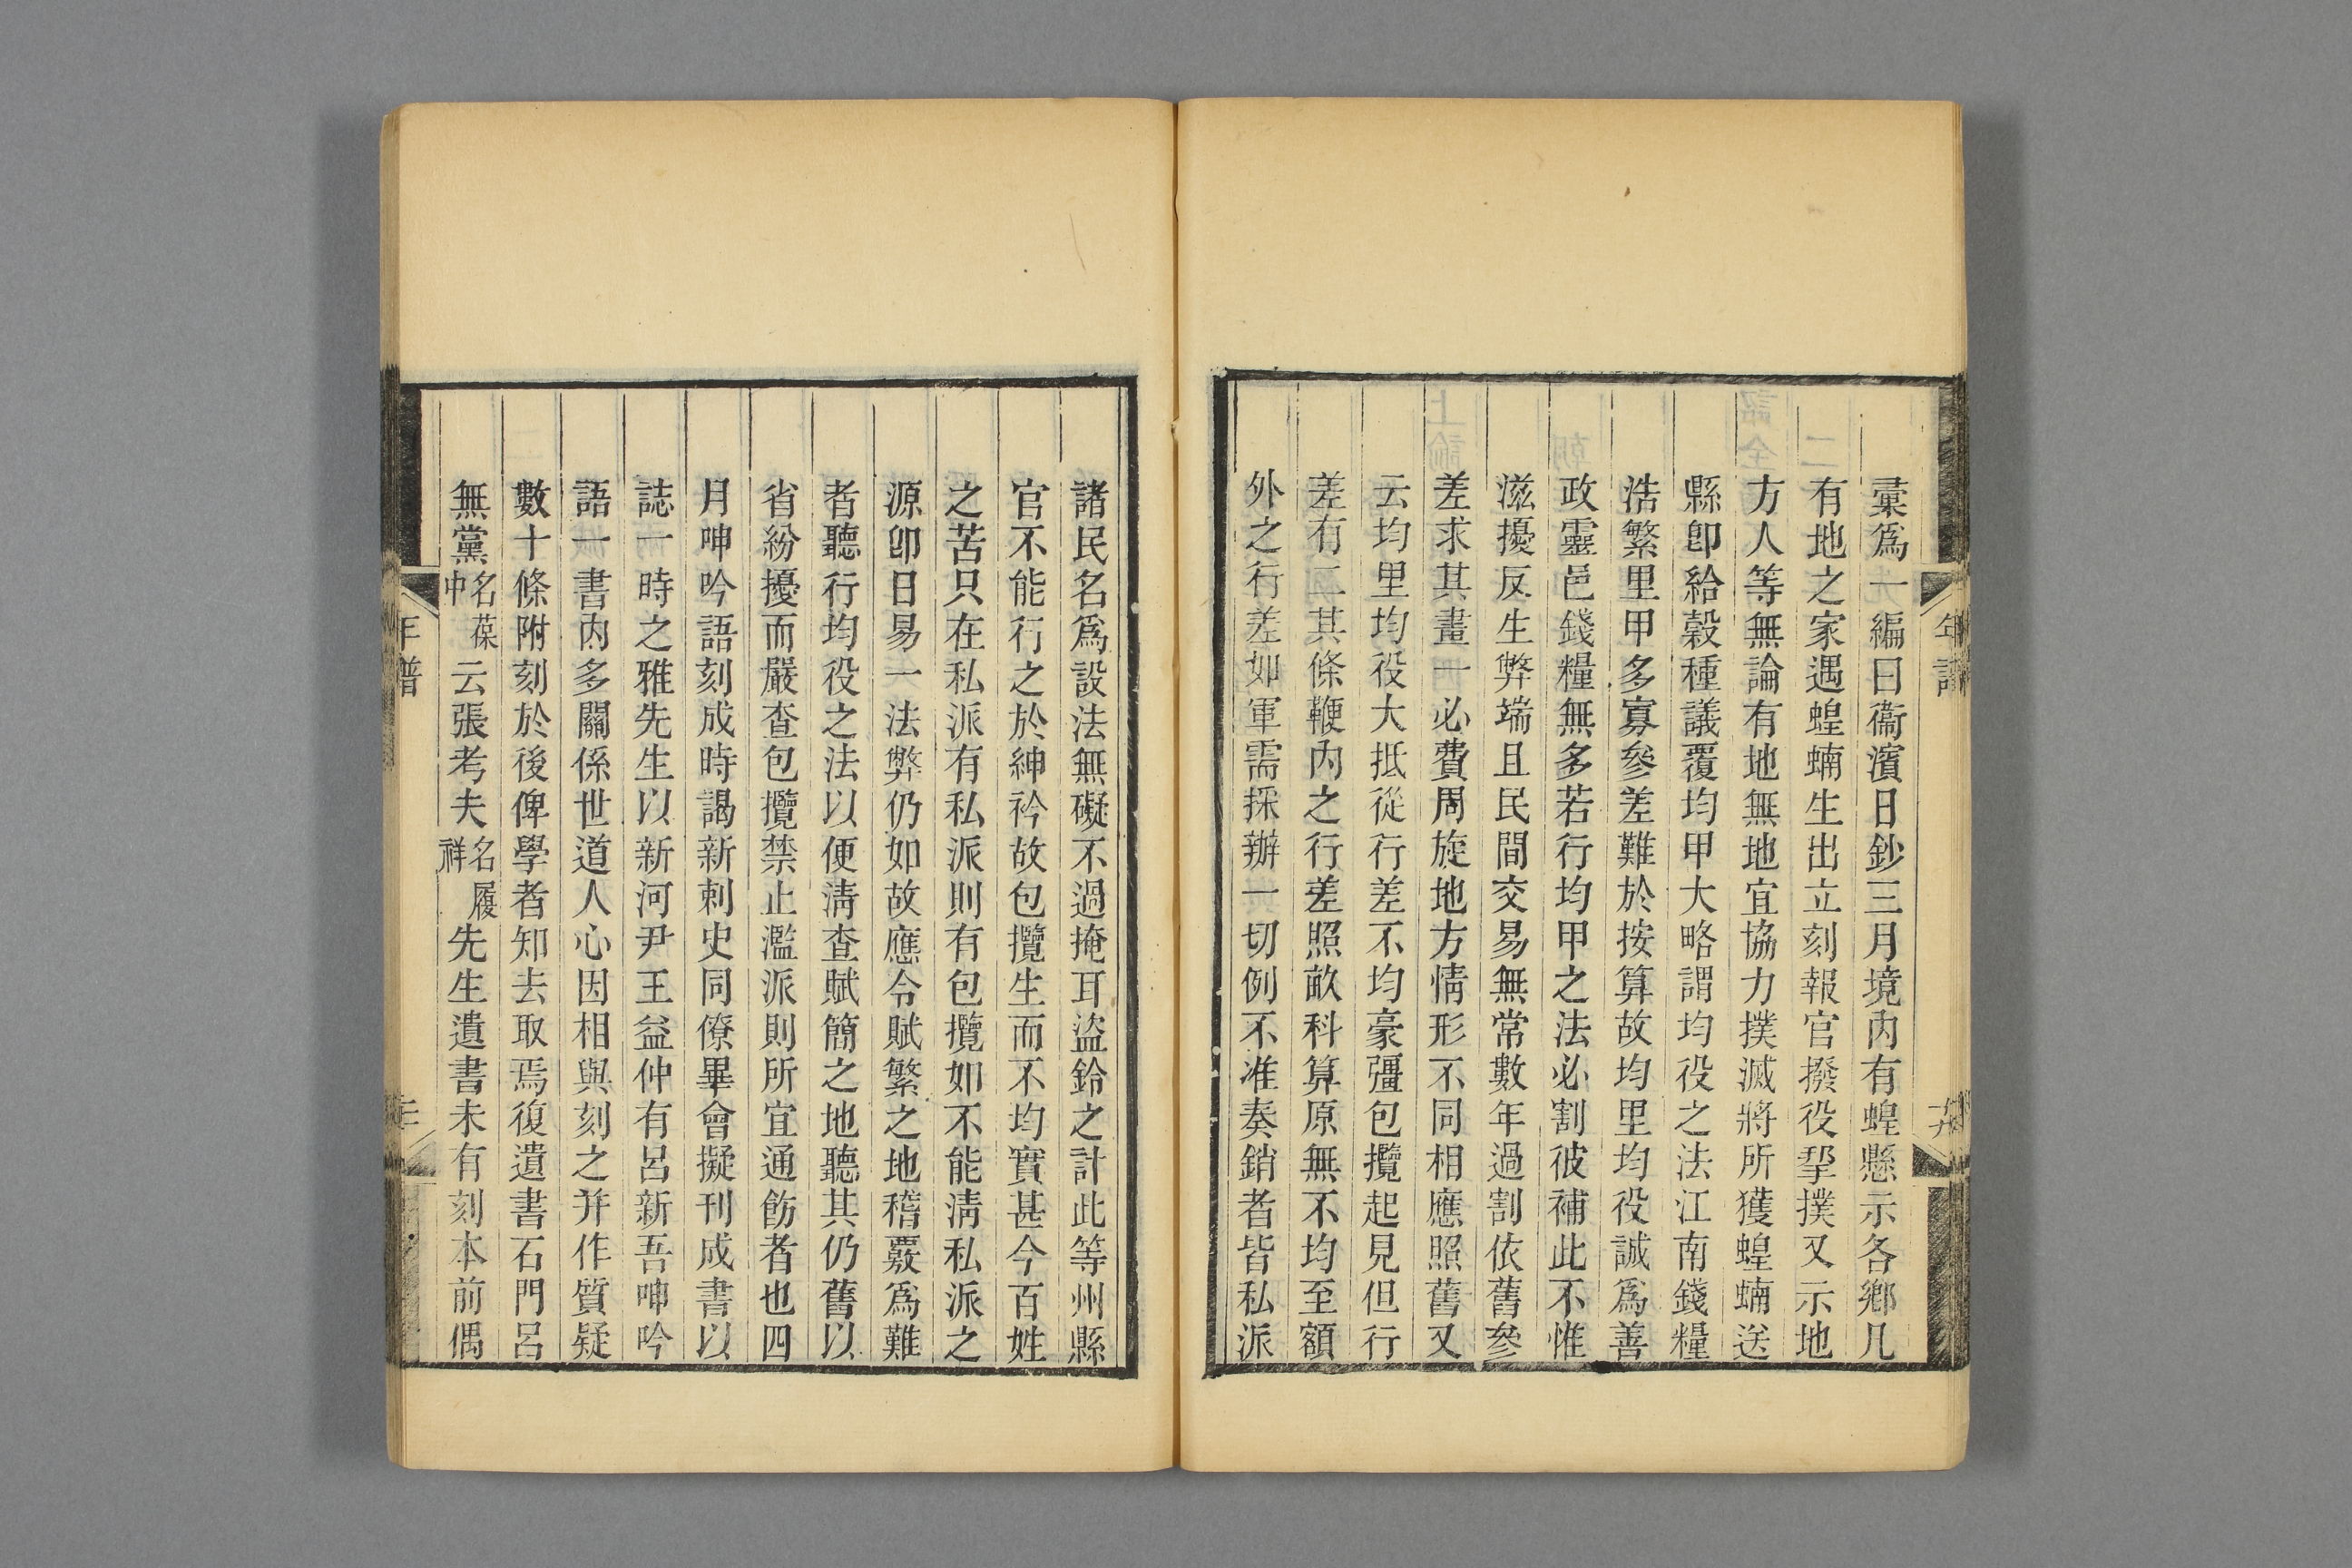 彚爲一編曰衞濱日鈔三月境內有蝗懸示各鄉凡
有地之家遇蝗蝻生出立刻報官撥役㧬撲又示地
方人等無論有地無地宜協力撲滅將所獲蝗蝻送
縣卽給穀種議覆均甲大略謂均役之法江南錢糧
浩繁里甲多寡參差難於按算故均里均役誠爲善
政靈邑錢糧無多若行均甲之法必割彼補此不惟
滋擾反生弊端且民間交易無常數年過割依舊參
差求其畫一必費周旋地方情形不同相應照舊又
云均里均役大抵從行差不均豪彊包攬起見但行
差有二其條鞭內之行差照畝科算原無不均至額
外之行差如軍需採辦一切例不准奏銷者皆私派
諸民名爲設法無礙不過掩耳盜鈴之計此等州縣
官不能行之於紳衿故包攬生而不均實甚今百姓
之苦只在私派有私派則有包攬如不能淸私派之
源卽日易一法弊仍如故應令賦繁之地稽覈爲難
者聽行均役之法以便淸查賦簡之地聽其仍舊以
省紛擾而嚴查包攬禁止濫派則所宜通飭者也四
月呻吟語刻成時謁新刺史同僚畢會擬刊成書以
誌一時之雅先生以新河尹王益仲有呂新吾呻吟
語一書內多關係世道人心因相與刻之幷作質疑
數十條附刻於後俾學者知去取焉復遺書石門呂
無黨名葆中云張考夫名履祥先生遺書未有刻本前偶
年譜